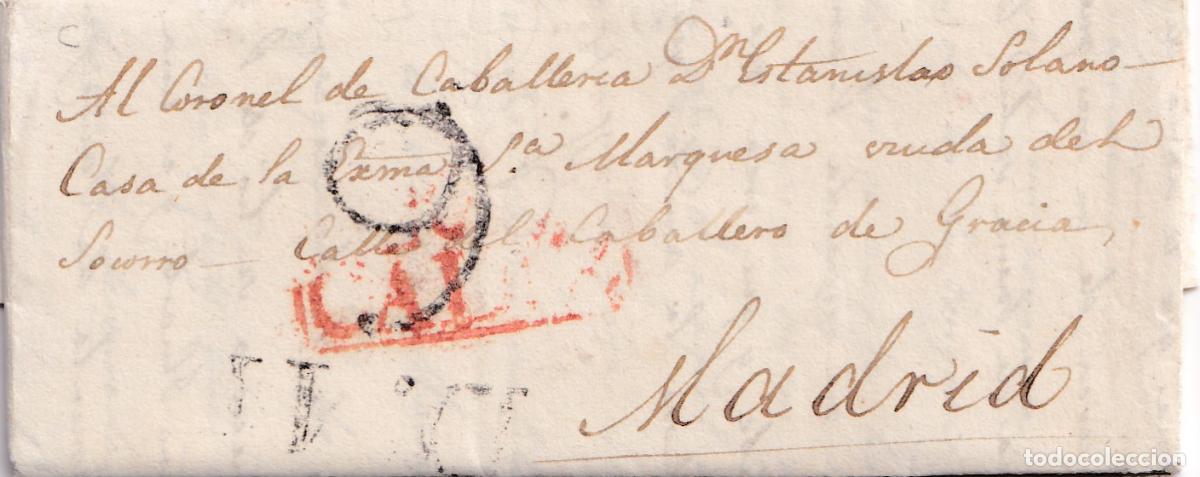 Al Coronel de Caballeria Dn Estanislao Solano
Casa de la Exma Sa Marquesa viuda del
Socorro Calle del Caballero de Gracia,
9
Madrid
todocoleccion